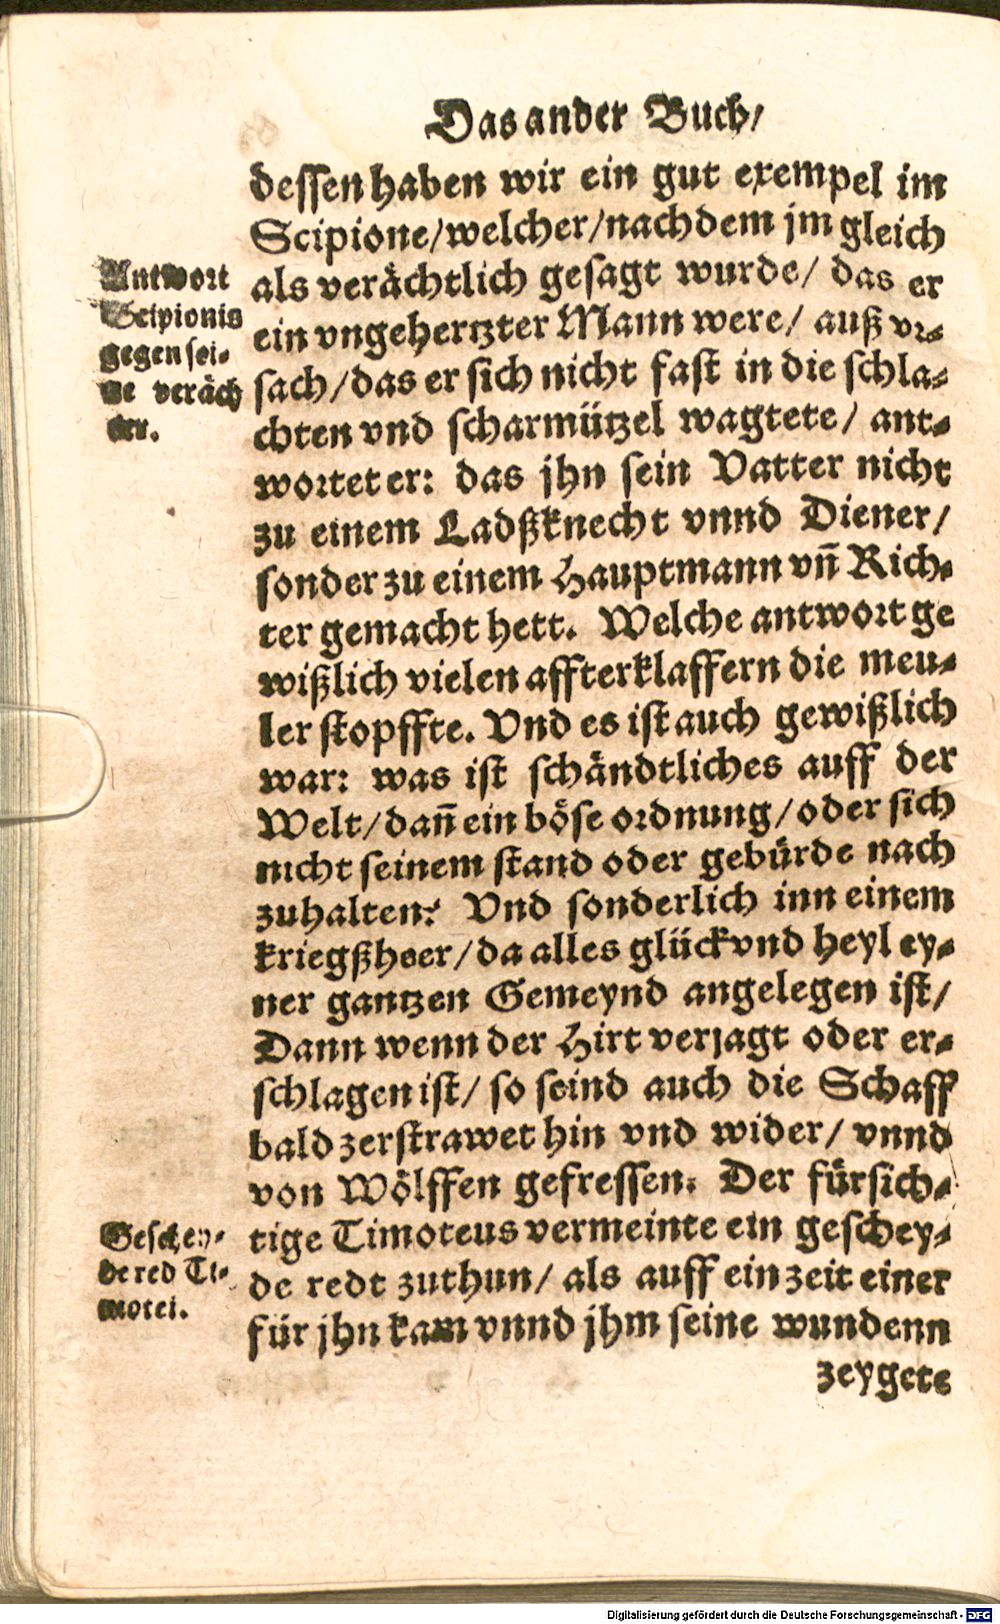 Das ander Buch/
dessen haben wir ein gut exempel im
Scipione/welcher/nachdem jm gleich
als verächtlich gesagt wurde/ das er
ein vngehertzter Mann were/ auß vr-
sach/das er sich nicht fast in die schla-
chten vnd scharmützel wagtete/ ant-
wortet er: das jhn sein Vatter nicht
zu einem Ladßknecht vnnd Diener/
sonder zu einem Hauptmann vñ Rich-
ter gemacht hett. Welche antwort ge
wißlich vielen affterklaffern die meu-
ler stopffte. Vnd es ist auch gewißlich
war: was ist schändtliches auff der
Welt/dañ ein böse ordnung/oder sich
nicht seinem stand oder gebürde nach
zuhalten? Vnd sonderlich inn einem
kriegßheer/da alles glück vnd heyl ey-
ner gantzen Gemeynd angelegen ist/
Dann wenn der Hirt verjagt oder er-
schlagen ist/ so seind auch die Schaff
bald zerstrawet hin vnd wider/ vnnd
von Wölffen gefressen. Der fürsich-
tige Timoteus vermeinte ein geschey-
de redt zuthun/ als auff ein zeit einer
für jhn kam vnnd jhm seine wundenn
zeygete
Antwort
Scipionis
gegen sei-
ne veräch
ter.
Geschey-
de red Ti-
motei.
Digitalisierung gefördert durch die Deutsche Forschungsgemeinschaft - DFG